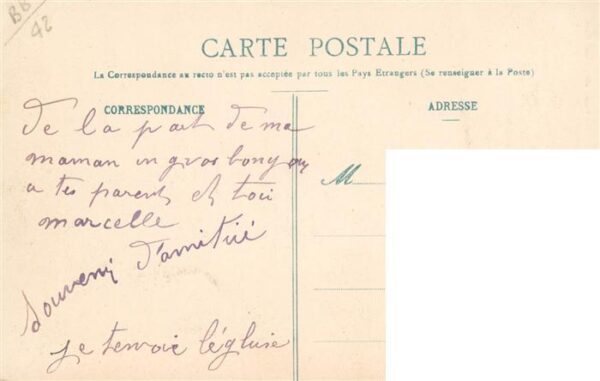 BB
42
CARTE POSTALE
La Correspondance au recto n'est pas acceptée par tous les Pays Etrangers (Se renseigner à la Poste)
CORRESPONDANCE
ADRESSE
De la part de ma
maman un gros bonjour
a tes parents et toi
marcelle
Souvenir D'amitié
je tenvoie légluise
M